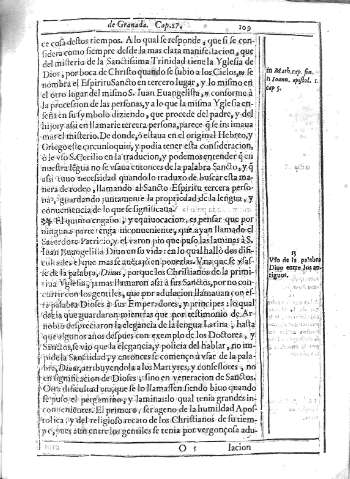 de Granada. Cap. 17. 109
ce cosa destos tiempos. A lo qual se responde, que si se con
sidera como siempre desde la mas clara manifestacion, que
del misterio de la Sanctissima Trinidad tiene la Yglesia de
Dios, por boca de Christo quando se subio a los Cielos, no se
nombra el Espiritu Sancto en tercero lugar, y lo mismo en
el otro lugar del mismo S. Juan Euangelista, o conforme à
la procession de las personas, y a lo que la misma Yglesia en-
seña en su symbolo diziendo, que procede del padre, y del
hijo y assi en llamarle tercera persona, parece q̃ se
mas el misterio. De donde, o estaua en el original Hebreo, y
Griego este circunloquio, y podia tener esta consideracion,
ò le vso S. Cecilio en la traducion, y podemos entender q̃ en
nuestra lẽgua no se vsaua entonces de la palabra Sancto, y q̃
assi tuuo necessidad quando lo traduxo de buscar esta ma
nera de rodeo, llamando al Sancto Espiritu tercera perso-
na, guardando juntamente la propriedad de la lengua, y
conueniencia de lo que se significaua.
El quinto engaño, y equiuocacion, es pensar que por
ninguna parte tenga inconueniente, que ayan llamado el
Sacerdote Patricio, y el varon pio que puso las laminas à S.
Juan Euangelista Diuo en su vida: en lo qual hallò dos difi-
cultades el que mas se auentajò en ponerlas. Vna que se vsas-
se de la palabra, Diuos, porque los Christianos de la primi-
tiua Yglesia, jamas llamaron assi a sus Sanctos, por no con-
currir con los gentiles, que por adulacion llamauan con es-
ta palabra Diuos à sus Emperadores, y principes: lo qual
dezia que guardaron mientras que por testimonio de Ar-
nobio despreciaron la elegancia de la lengua Latina, hasta
que algunos años despues con exemplo de los Doctores, y
Sanctos, se vio que la elegancia, y policia del hablar, no im
pide la Sanctidad, y entonces se començò à vsar de la pala-
bra, Diuos, atribuyendola a los Martyres, y confessores, no
en significacion de Dioses, sino en veneracion de Sanctos.
Otra dificultad era, que se lo llamassen siendo biuo quando
se puso el pergamino, y laminas lo qual tenia grandes in-
conuenientes. El primero, ser ageno de la humildad Apos-
tolica, y del religioso recato de los Christianos de su tiem-
po, pues aun entre los gentiles se tenia por vergonçosa adu-
O 5 lacion
in Math. cap. fin.
in Ioann. epistol. 1.
cap 5.
Vso de la palabra
Diuo entre los an-
tiguos.